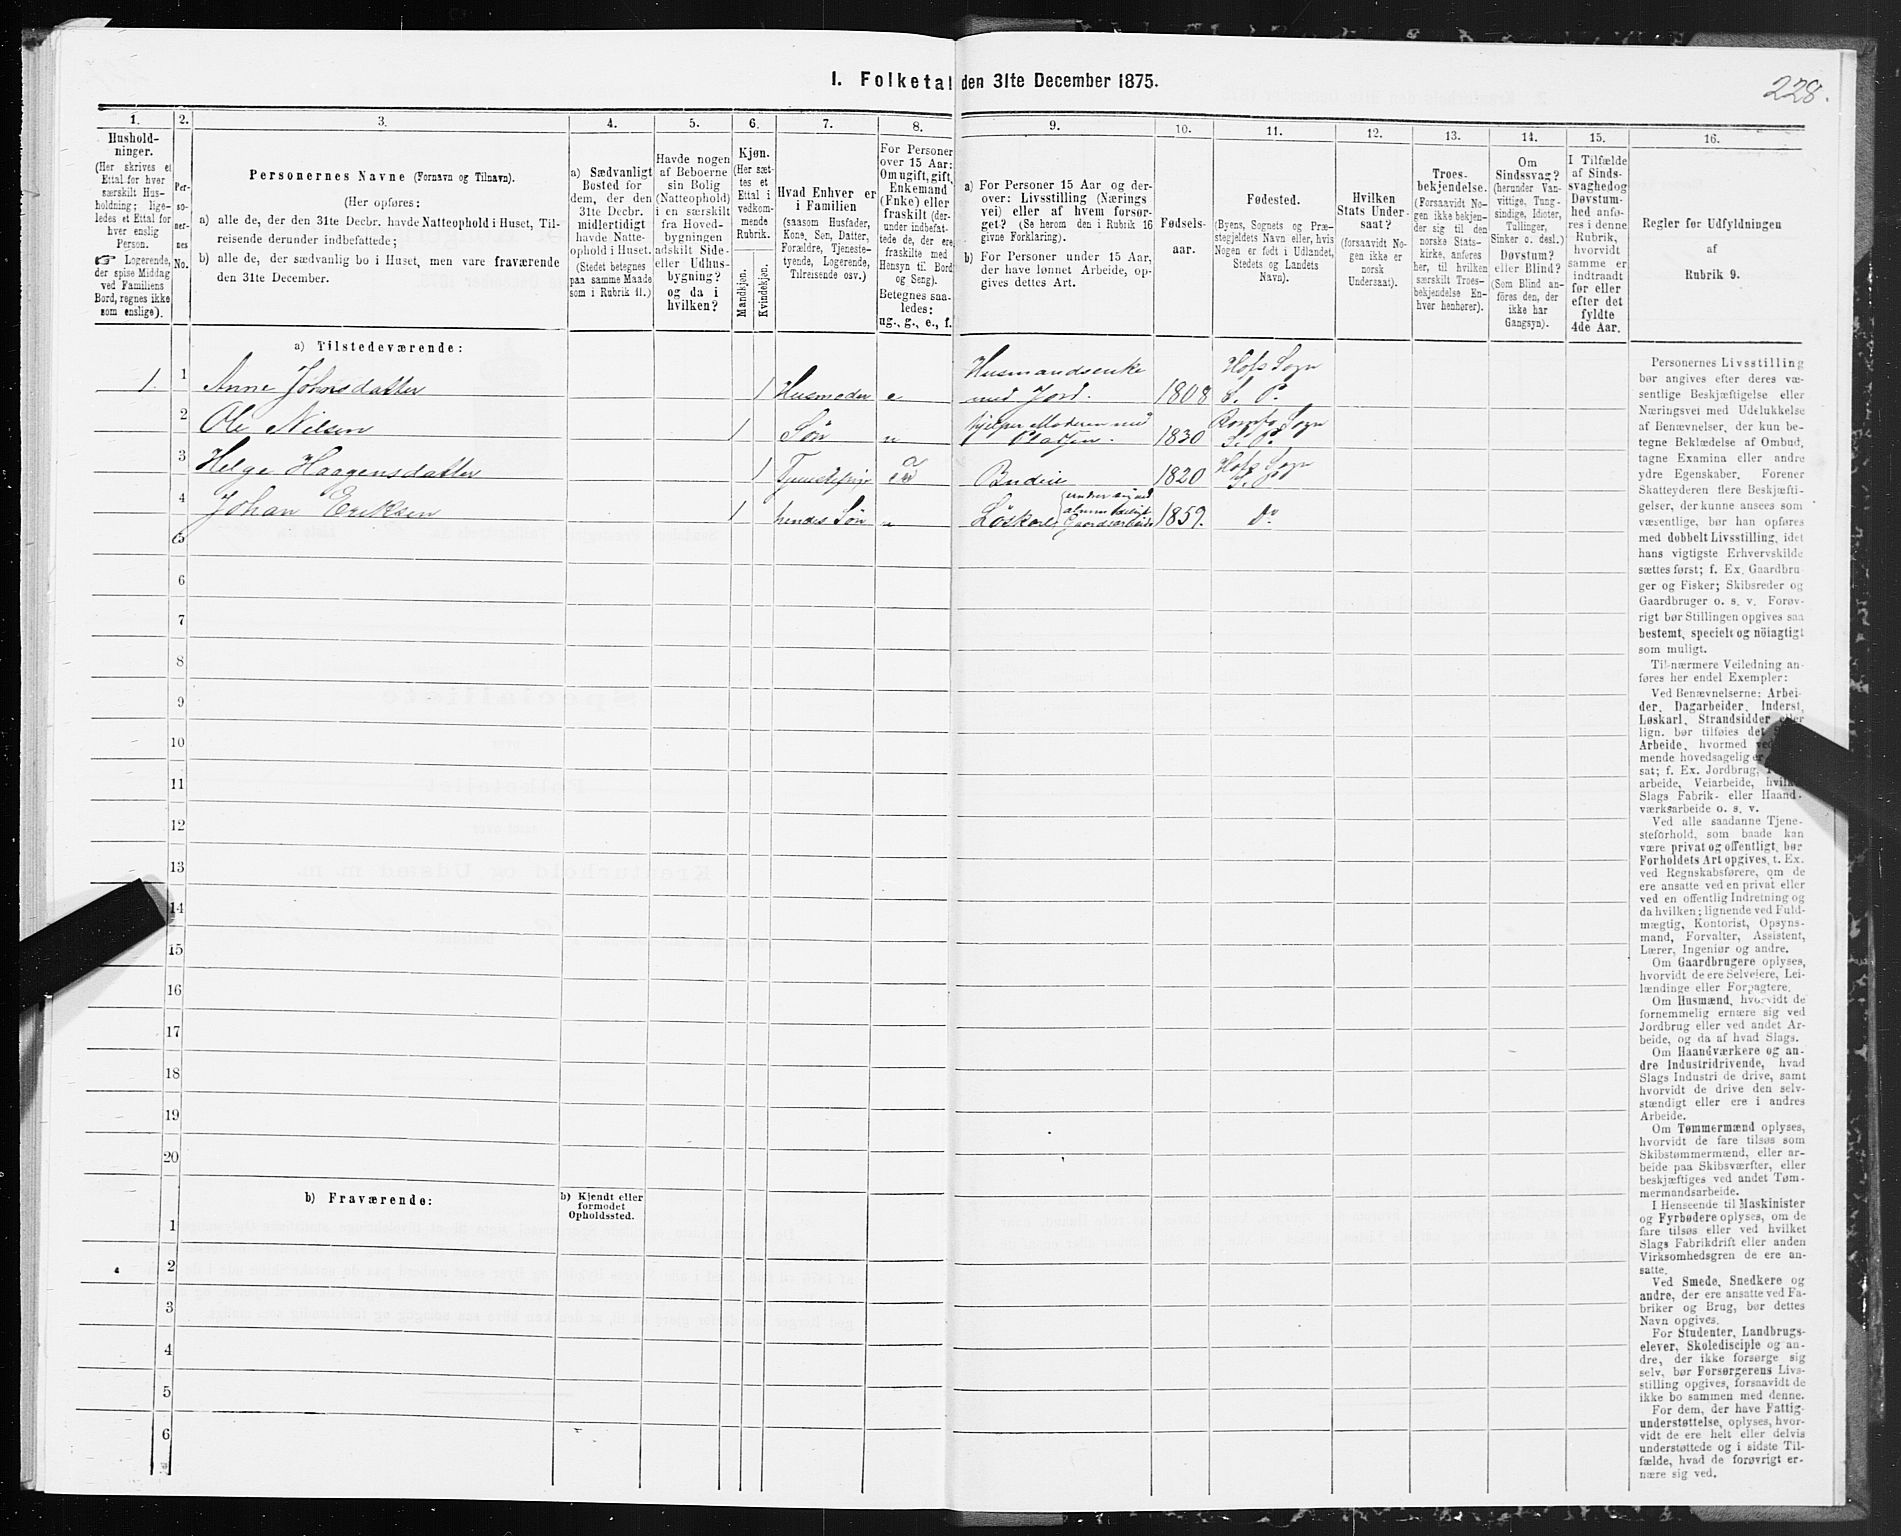 I. Folketal den 31te December 1875.
228.
1.
Hushold-
ninger.
(Her skrives et
Ettal for hver
særskilt Hus-
holdning; lige-
ledes et Ettal for
hver enslig
Person.
☞ Logerende,
der spise Middag
ved Familiens
Bord, regnes ikke
som enslige).
2.
Per-
so-
ner-
nes
No.
3.
Personernes Navne (Fornavn og Tilnavn).
(Her opføres:
a) alle de, der den 31te Decbr. havde Natteophold i Huset, Til-
reisende derunder indbefattede;
b) alle de, der sædvanlig bo i Huset, men vare fraværende
den 31te December.
4.
a) Sædvanligt
Bosted for
dem, der den
31te Decbr.
midlertidigt
havde Natte-
ophold i Huset.
(Stedet betegnes
paa samme Maade
som i Rubrik 11.)
5.
Havde nogen
af Beboerne
sin Bolig
(Natteophold)
i en særskilt
fra Hoved-
bygningen
adskilt Side-
eller Udhus-
bygning?
og da i
hvilken?
6.
Kjøn.
(Her sæt-
tes et
Ettal i
vedkom-
mende
Rubrik.
Mandkjøn.
Kvindekjøn.
7.
Hvad Enhver er
i Familien
(saasom Husfader,
Kone, Søn, Datter,
Forældre, Tjeneste-
tyende, Logerende,
Tilreisende osv.)
8.
For Personer
over 15 Aar:
Om ugift, gift,
Enkemand
(Enke) eller
fraskilt (der-
under indbefat-
tede de, der ere
fraskilte med
Hensyn til Bord
og Seng).
Betegnes saa-
ledes:
ug., g., e., f.
9.
a) For Personer 15 Aar og der-
over: Livsstilling (Nærings
vei) eller af hvem forsør-
get? (Se herom den i Rubrik 16
givne Forklaring).
b) For Personer under 15 Aar,
der have lønnet Arbeide, op-
gives dettes Art.
10.
Fødsels-
aar.
11.
Fødested.
(Byens, Sognets og Præ-
stegjeldets Navn eller, hvis
Nogen er født i Udlandet,
Stedets og Landets
Navn).
12.
Hvilken
Stats Under-
saat?
(forsaavidt No-
gen ikke er
norsk
Undersaat).
13.
Troes-
bekjendelse.
(Forsaavidt No-
gen ikke bekjen-
der sig til den
norske Stats-
kirke, anføres
her, til hvilken
særskilt Troes-
bekjendelse En-
hver henhører).
14.
Om
Sindssvag?
(herunder Van-
vittige, Tung-
sindige, Idioter,
Tullinger,
Sinker o. desl.)
Døvstum?
eller Blind?
(Som Blind an-
føres den, der
ikke har
Gangsyn).
15.
I Tilfælde
af Sinds-
svaghed og
Døvstum-
hed anfø-
res i denne
Rubrik,
hvorvidt
samme er
indtraadt
før eller
efter det
fyldte
4de Aar.
16.
Regler for Udfyldningen
af
Rubrik 9.
a) Tilstedeværende:
1. 1 Anne Johnsdatter 1 Husmoder e Husmandsenke med Jord. 1808 Hofs Sogn S. P.
2 Ole Nilsen 1 Søn u hjelper Moderen med Pladsen. 1830 Sogn S. P.
3 Helge Haagensdatter 1 Budeie 1820 Hofs Sogn S. P.
4 Johan Eriksen 1 hendes Søn u Løskarl Gaardsarbeide 1859. Do
5
6
7
8
9
10
11
12
13
14
15
16
17
18
19
20
b) Fraværende:
b) Kjendt eller
formodet
Opholdssted.
1
2
3
4
5
6
Personernes Livsstilling
bør angives efter deres væ-
sentlige Beskjæftigelse eller
Næringsvei med Udelukkelse
af Benævnelser, der kun be-
tegne Beklædelse af Ombud,
tagne Examina eller andre
ydre Egenskaber. Forener
Skatteyderen flere Beskjæfti-
gelser, der kunne ansees som
væsentlige, bør han opføres
med dobbelt Livsstilling, idet
hans vigtigste Erhvervskilde
sættes først; f. Ex. Gaardbru-
ger og Fisker; Skibsreder og
Gaardbruger o. s. v. Forøv-
rigt bør Stillingen opgives saa
bestemt, specielt og nöiagtigt
som muligt.
Til nærmere Veiledning an-
føres her endel Exempler:
Ved Benævnelserne: Arbei-
der, Dagarbeider, Inderst,
Løskarl, Strandsidder eller
lign. bør tilføies det
Arbeide, hvormed
mende hovedsagelig er
sat; f. Ex. Jordbrug,
arbeide, Veiarbeide, hvilke
Slags Fabrik- eller Haand-
værksarbeide o. s. v.
Ved alle saadanne Tjene-
steforhold, som baade kan
være privat og offentligt, bør
Forholdets Art opgives, t. Ex.
ved Regnskabsførere, om de
ere ansatte ved en privat eller
ved en offentlig Indretning og
da hvilken; lignende ved Fuld-
mægtig, Kontorist, Opsyns-
mand, Forvalter, Assistent,
Lærer, Ingeniør og andre.
Om Gaardbrugere oplyses,
hvorvidt de ere Selveiere, Lei-
lændinge eller Forpagtere.
Om Husmænd, hvorvidt de
fornemmelig ernære sig ved
Jordbrug eller ved andet Ar-
beide, og da af hvad Slags.
Om Haandværkere og an-
dre Industridrivende, hvad
Slags Industri de drive, samt
hvorvidt de drive den selv-
stændigt eller ere i andres
Arbeide.
Om Tømmermænd oplyses,
hvorvidt de fare tilsøs som
Skibstømmermænd, eller ar-
beide paa Skibsværfter, eller
beskjæftiges ved andet Tøm-
mermandsarbeide.
I Henseende til Maskinister
og Fyrbødere oplyses, om de
fare tilsøs eller ved hvilket
Slags Fabrikdrift eller anden
Virksomhedsgren de ere an-
satte.
Ved Smede, Snedkere og
andre, der ere ansatte ved Fa-
briker og Brug, bør dettes
Navn opgives.
For Studenter, Landbrugs-
elever, Skoledisciple og an-
dre, der ikke forsørge sig
selv, bør Forsørgerens Livs-
stilling opgives, forsaavidt de
ikke bo sammen med denne.
For dem, der have Fattig-
understøttelse, oplyses, hvor-
vidt de ere helt eller delvis
understøttede og i sidste Til-
fælde, hvad de forøvrigt er-
nære sig ved.